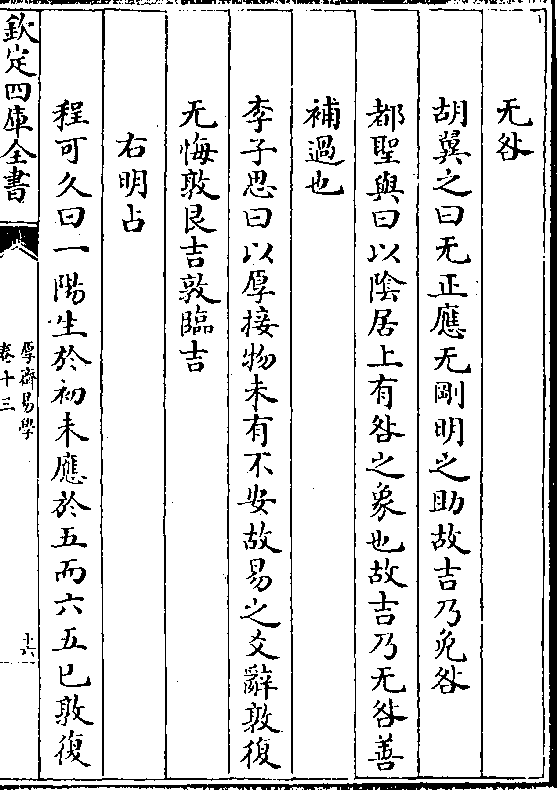 无咎
胡翼之曰无正應无剛明之助故吉乃免咎
都聖與曰以陰居上有咎之象也故吉乃无咎善
補過也
李子思曰以厚接物未有不安故易之爻辭敦復
无悔敦艮吉敦臨吉
右明占
程可久曰一陽生於初未應於五而六五已敦復
欽定四庫全書
厚齋易學
卷十三
十六